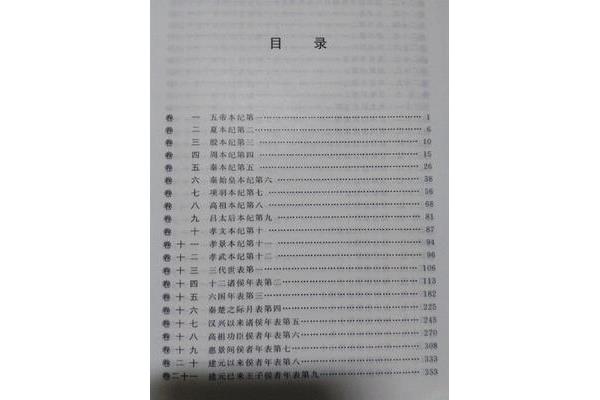 目 录
卷 一 五帝本纪第一 1
卷 二 夏本纪第二 6
卷 三 殷本纪第三 10
卷 四 周本纪第四 15
卷 五 秦本纪第五 26
卷 六 秦始皇本纪第六 38
卷 七 项羽本纪第七 56
卷 八 高祖本纪第八 68
卷 九 吕太后本纪第九 81
卷 十 孝文本纪第十 87
卷十一 孝景本纪第十一 94
卷十二 孝武本纪第十二 96
卷十三 三代世表第一 106
卷十四 十二诸侯年表第二 113
卷十五 六国年表第三 182
卷十六 秦楚之际月表第四 225
卷十七 汉兴以来诸侯年表第五 245
卷十八 高祖功臣侯者年表第六 270
卷十九 惠景间侯者年表第七 308
卷二十 建元以来侯者年表第八 333
卷二十一 建元已来王子侯者年表第九 353